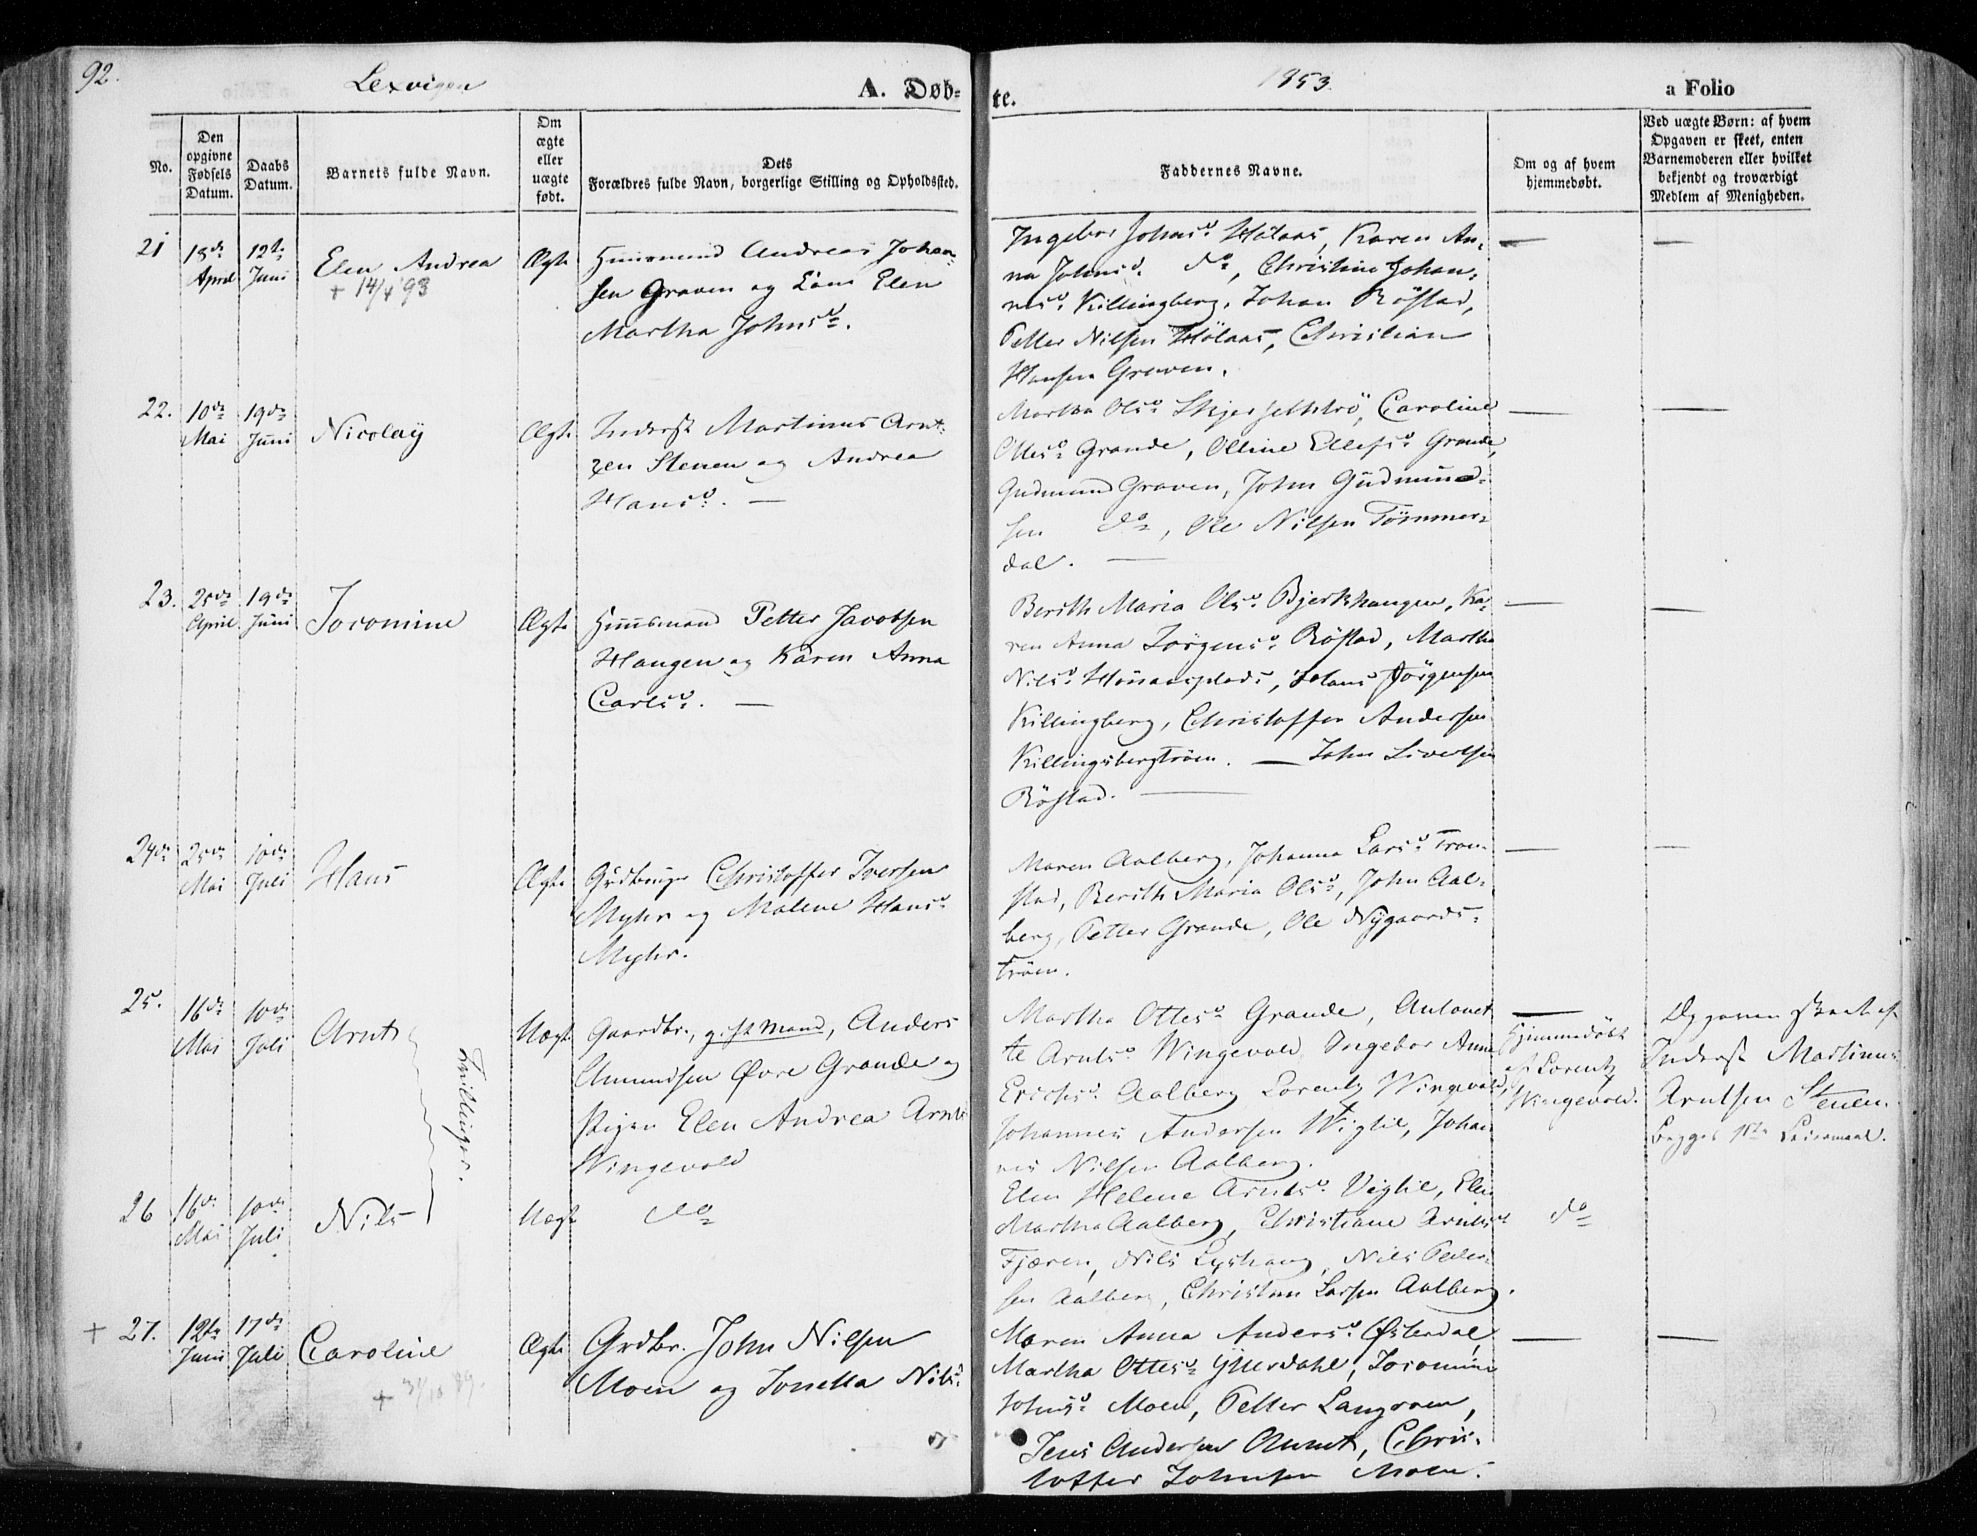 92.
Lexvigen
A. Døb=
te.
1853.
a Folio
No.
Den opgivne Fødsels Datum.
Daabs Datum.
Barnets fulde Navn.
Om ægte eller uægte født.
Dets
Forældres fulde Navn, borgerlige Stilling og Opholdssted.
Faddernes Navne.
Om og af hvem hjemmedøbt.
Ved uægte Børn: af hvem Opgaven er skeet, enten Barnemoderen eller hvilket bekjendt og troværdigt Medlem af Menigheden.
21
18de April
12te Juni
Elen Andrea
+ 14/4 93
Ægte
Huusmand Andreas Johan=
sen Graven og Elen
Martha Johnsd.
Ingebor Johnsd. Hølaas, Karen An=
na Johnsd. do, Christine Johan=
nesd. Killingberg, Johan Røstad,
Petter Nilsen Hølaas, Christian
Hansen Graven.
—
—
22.
10de Mai
19de Juni
Nicolaÿ
Ægte
Inderst Martinus Arnt=
zen Stenen og Andrea
Hansd. —
Martha Olsd. , Caroline
Ottesd. Grande, Olline Ellefsd. Grande,
Gudmund Graven, John Gudmund=
sen do, Ole Nilsen Tømmer=
dal. —
—
—
23.
25de April
19de Juni
Jocomine
Ægte
Huusmand Petter Jacobsen
Haugen og Karen Anna
Carlsd. —
Berith Maria Olsd. Bjerkhaugen, Ka=
ren Anna Jørgensd. Røstad, Martha
Nilsd. Hønaasplads, Hans Jørgensen
Killingberg, Christoffer Andersen
Killingsbergtrøen. — John Sivertsen
Røstad. —
—
—
24de
25de Mai
10de Juli
Hans
Ægte
Grdbruger Christoffer Iversen
Myhr og Malene Hansd.
Myhr.
Maren Aalberg, Johanna Larsd. Tron=
stad, Berith Maria Olsd., John Aal=
berg, Petter Grande, Ole Nygaards=
trøen.
—
—
25.
16de Mai
10de Juli
Arnt
Tvillinger.
Uægte
Gaardbr., gift Mand, Anders
Amundsen Øvre Grande og
Pigen Elen Andrea Arntsd.
Wingevold
Martha Ottesd. Grande, Antonet=
te Arntsd. Wingevold, Ingebor Anna
Erichsd. Aalberg, Lorentz Wingevold,
Johannes Andersen Wigtil, Johan=
nes Nilsen Aalberg.
—
Hjemmedøbt
af Lorentz
Wingevold.
Opgaven skeet af
Inderst Martinus
Arntsen Stenen.
Begges 1ste Leiermaal.
26
16de Mai
10de Juli
Nils
Uægte
do
Elen Helene Arntsd. Vigtil, Elen
Martha Aalberg, Christiane Arntsd.
Fjæren, Nils Lyshaug, Nils Peder=
sen Aalberg, Christian Larsen Aalberg.
do
+ 27.
12te Juni
17de Juli
Caroline
+ 31/10 89.
Ægte
Grdbr. John Nilsen
Moen og Jonetta Nilsd.
Maren Anna Andersd. Østerdal,
Martha Ottesd. Ytterdahl, Jocomine
Johnsd. Moen, Petter Langaven,
Jens Andersen Aunet, Chris=
toffer Johnsen Moen.
—
—